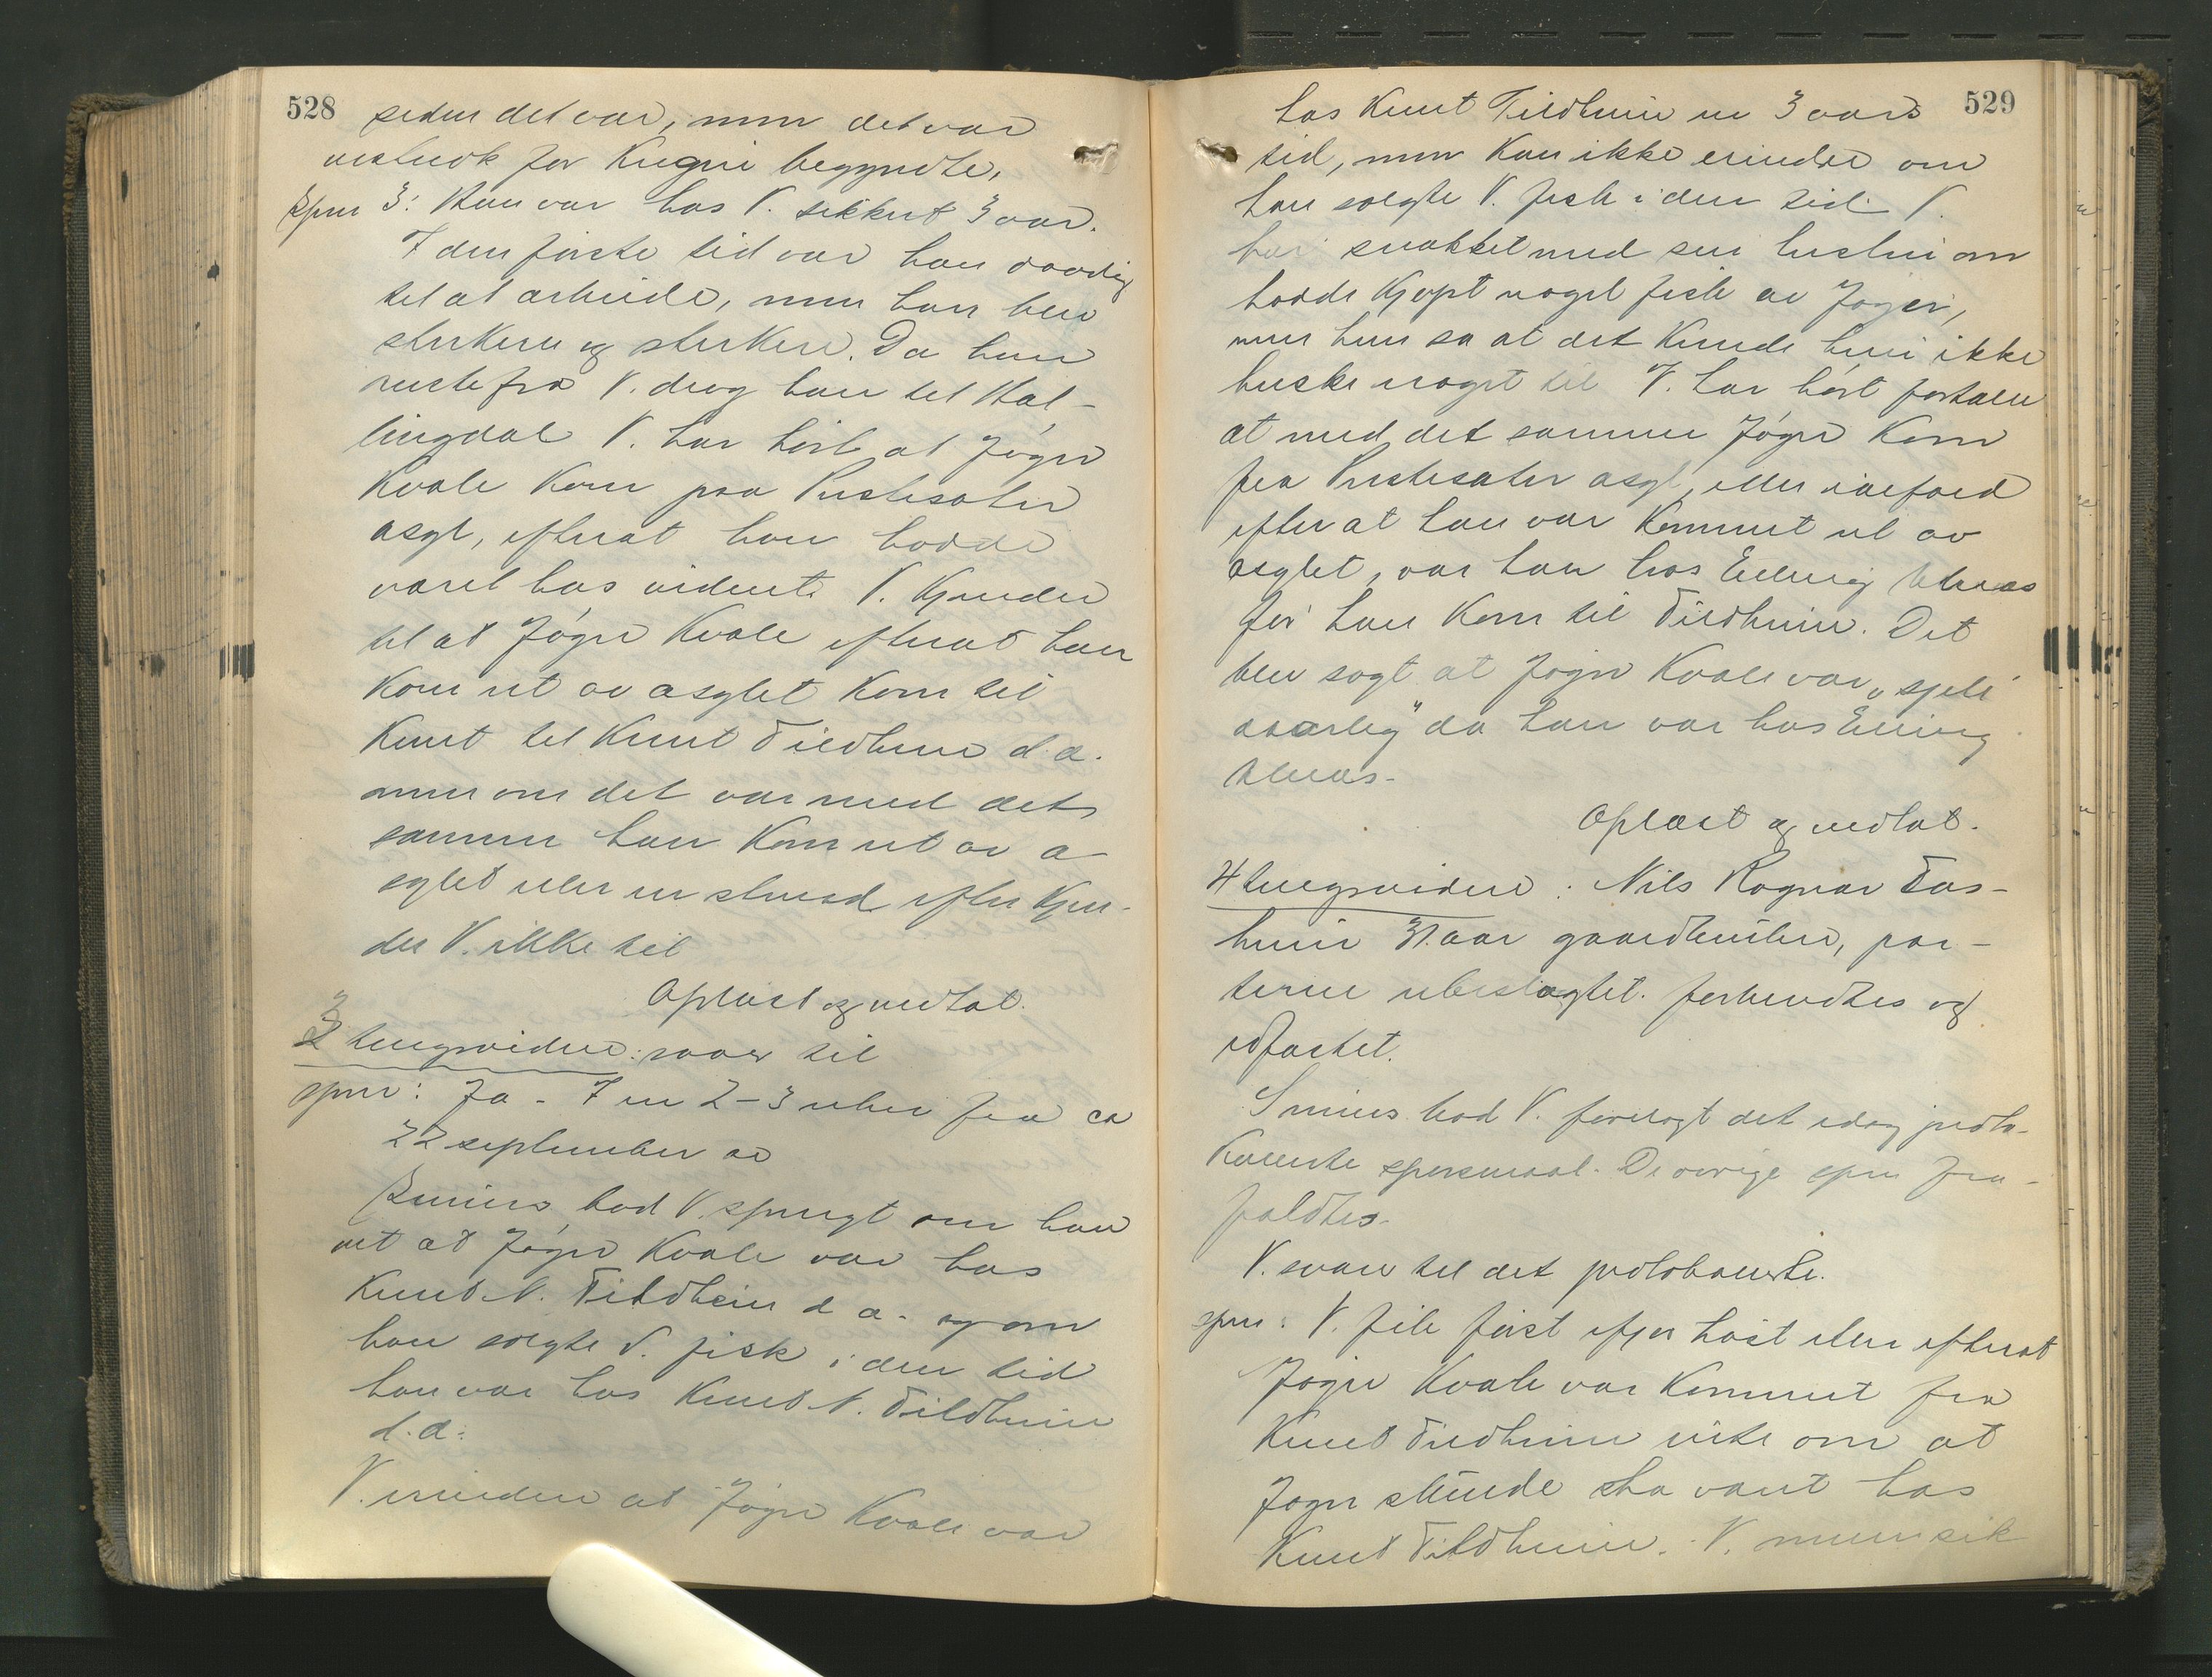 528
siden det var, men det var
mesteok før Krigen begyndte,
Spm 3: Han var hos V. sikkert 3 aar.
I den første tid var han daarlig
til at arbeide, men han blev
sterkere og sterkere. Da han
reiste fra V. drog han til Hal-
lingdal V. har hørt at Jøger
Kvale kom paa Prestesæter
asyl, efterat han hadde
været hos vidnet. V. kjender
til at Jøger Kvale efterat han
kom ut av asylet kom til
Knut til Knut Tildheim d.a.
men om det var med det
samme han kom ut av a
sylet eller en stund efter kjen-
der V. ikke til
Oplæst og vedtat.
3 tingsvidne: svarer til
spm: Ja - I en 2-3 uker fra ca
22 september av
Seniors bad V. spurgt om han
vet at Jøger Kvale var hos
Knut N. Tildheim d a. og om
han solgte V. fisk i den tid
han var hos Knut N. Tildheim
d.a:
V. erindrer at Jøger Kvale var
529
hos Knut Tildheim en 3 aars
tid, men kan ikke erindre om
han solgte V. fisk i den tid. V.
har snakket med sin hustru om
hadde kjøpt noget fisk av Jøger,
men hun sa at det kunde hun ikke
huske noget til V. har hørt fortalen
at med det samme Jøger kom
fra Prestesæter asyl, eller ialfald
efter at han var kommet ut av
asylet, var han hos Elling
før han kom til Tildheim. Det
blev sagt at Jøger Kvale var "
" da han var hos Elling
Oplæst og vedtat.
4 tingsvidne: Nils Ragnar Tas-
heim 31 aar gaardbruker, par-
terne ubeslægtet. formendtes og
edfæstet.
Seniors bad V. forelagt det idag proto-
kollerte spørsmaal. De øvrige spm fra-
faldtes.
V. svarer til det protokollerte.
spm: V. fik først ifjor høst eller efterat
Jøger Kvale var kommet fra
Knut Tildheim vite om at
Jøger skulde ha vært hos
Knut Tildheim. V. mener sik